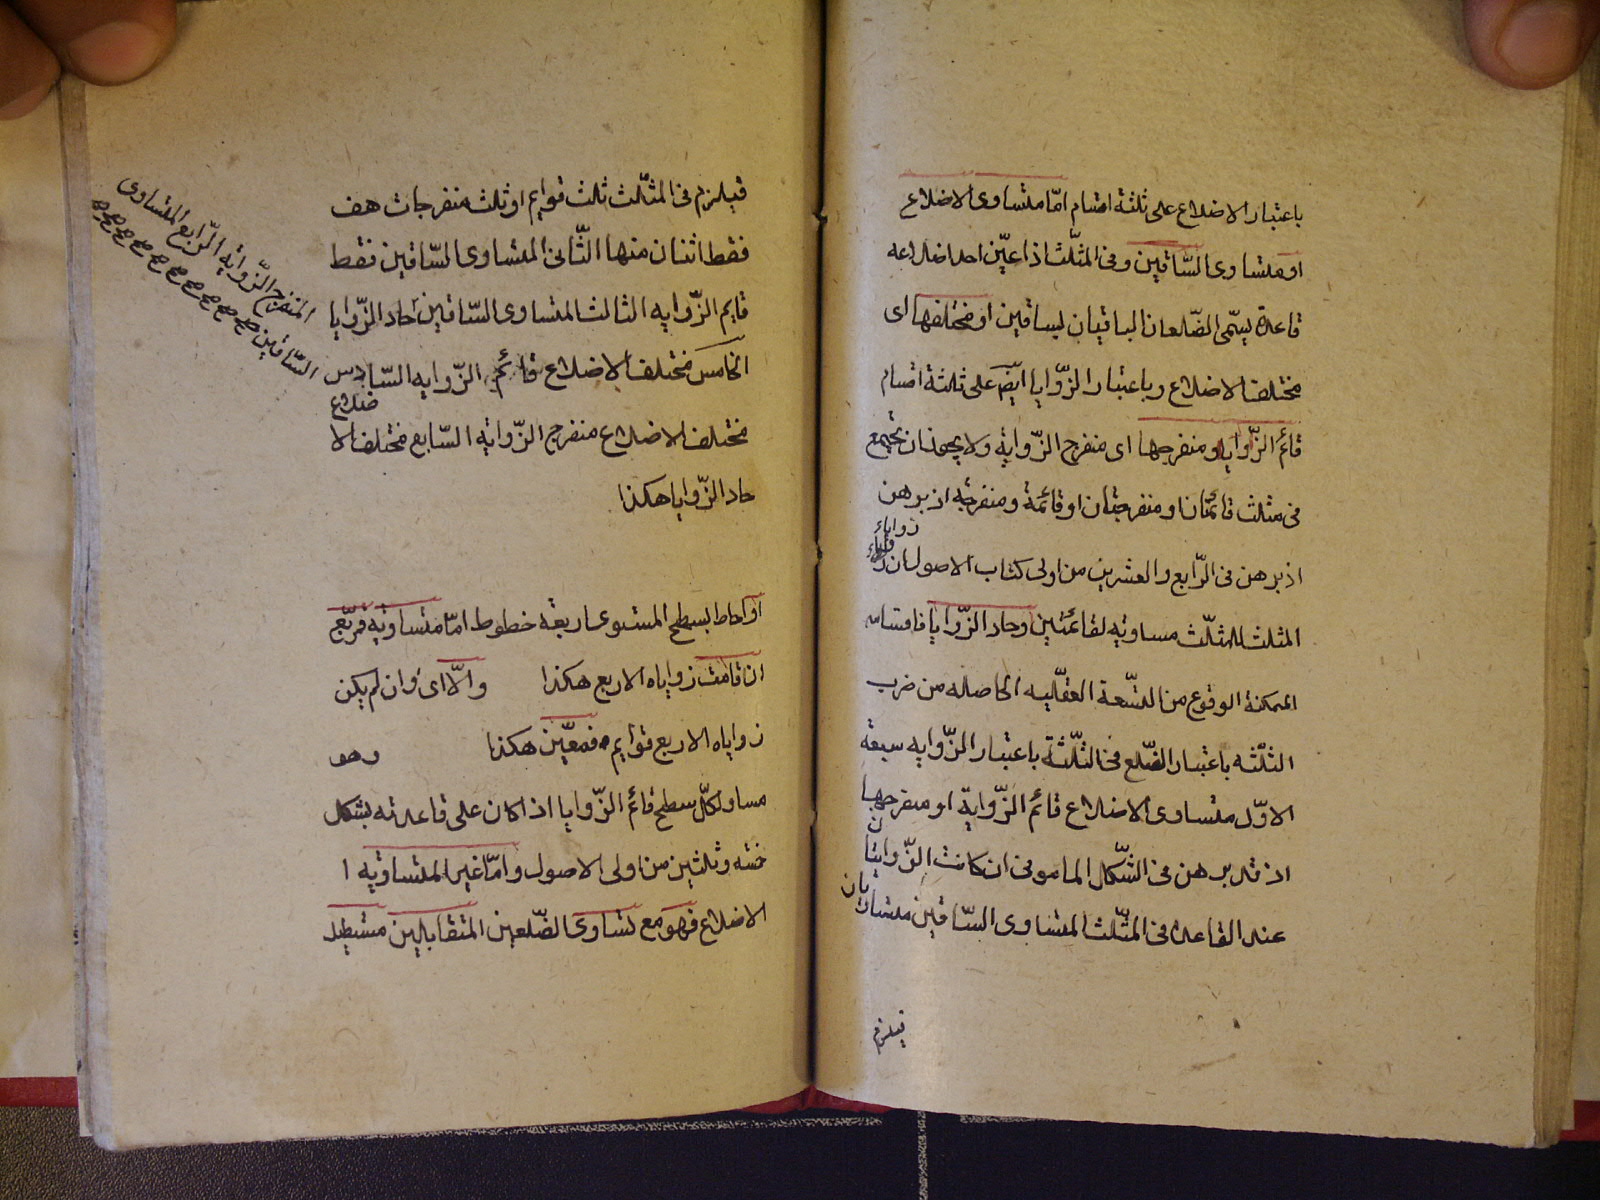 باعتبار الاضلاع على ثلثة اقسام امّا متساوى الاضلاع
او متساوى السّاقين وفى المثلّث اذا عيّن احد اضلاعه
قاعدة يسمّى الضّلعان الباقيان بساقين او مختلفها اى
مختلف الاضلاع وباعتبار الزّوايا ايضَ على ثلثة اقسام
قائم الزّوايه او منفرجها اى منفرج الزّواية ولا يجوز ان تجتمع
فى مثلث قائمتان او منفرجتان او قائمة ومنفرجة اذ برهن
اذ برهن فى الرّابع والعشرين من اولى كتاب الاصول ان
زواياء
المثلث المثلّث مساويه لقائمتين وحاد الزّوايا فاقسامه
الممكنة الوقوع من التسّعة العقليه الحاصله من ضرب
الثلّثه باعتبار الضّلع فى الثلّثة باعتبار الزّوايه سبعة
الاوّل متساوى الاضلاع قائم الزّوايةّ او منفرجها
اذ قد برهن فى الشّكل المامونى ان كانت الزّوايتان
عند القاعدة فى المثلّث المتساوى السّاقين متساويان
فيلزم
فيلزم فى المثلّث ثلث قوايم او ثلث منفرجات هف
فقط اثنان منها الثّانى المتساوى السّاقين فقط
قايم الزّوايه الثالث المتساوى السّاقين حاد الزّوايا
المنفرج الزّوايه الرّابع المتساوى
السّاقين
الخامس مختلف الاضلاع قائم الزّوايه السّادس
مختلف الاضلاع منفرج الزّوايه السّابع مختلف الا
ضلاع
حاد الزّوايا هكذا
او احاط بسطح المستوى اربعة خطوط امّا متساويه فمربّع
ان قامت زواياه الاربع هكذا والّا اى وان لم يكن
زواياه الاربع قوايم فمعيّن هكذا وهو
مساو لكلّ سطح قائم الزّوايا اذا كان على قاعدته بشكل
خمسه وثلثين من اولى الاصول وامّا غير المتساويه ا
الاضلاع فهو مع تساوى الضّلعين المتقابلين مستطيل